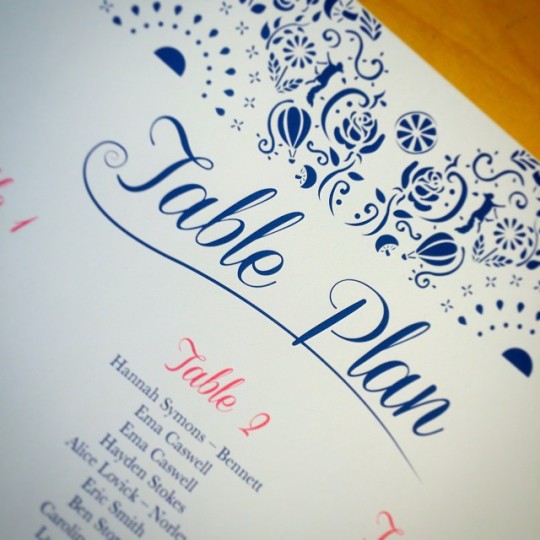 Table Plan
Table 2
Hannah Symons – Bennett
Ema Caswell
Ema Caswell
Hayden Stokes
Alice Lovick –
Eric Smith
Ben
1